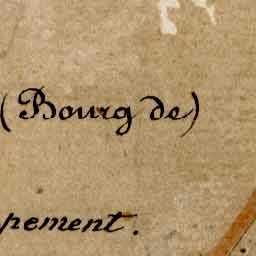 (Bourg de)
pement.